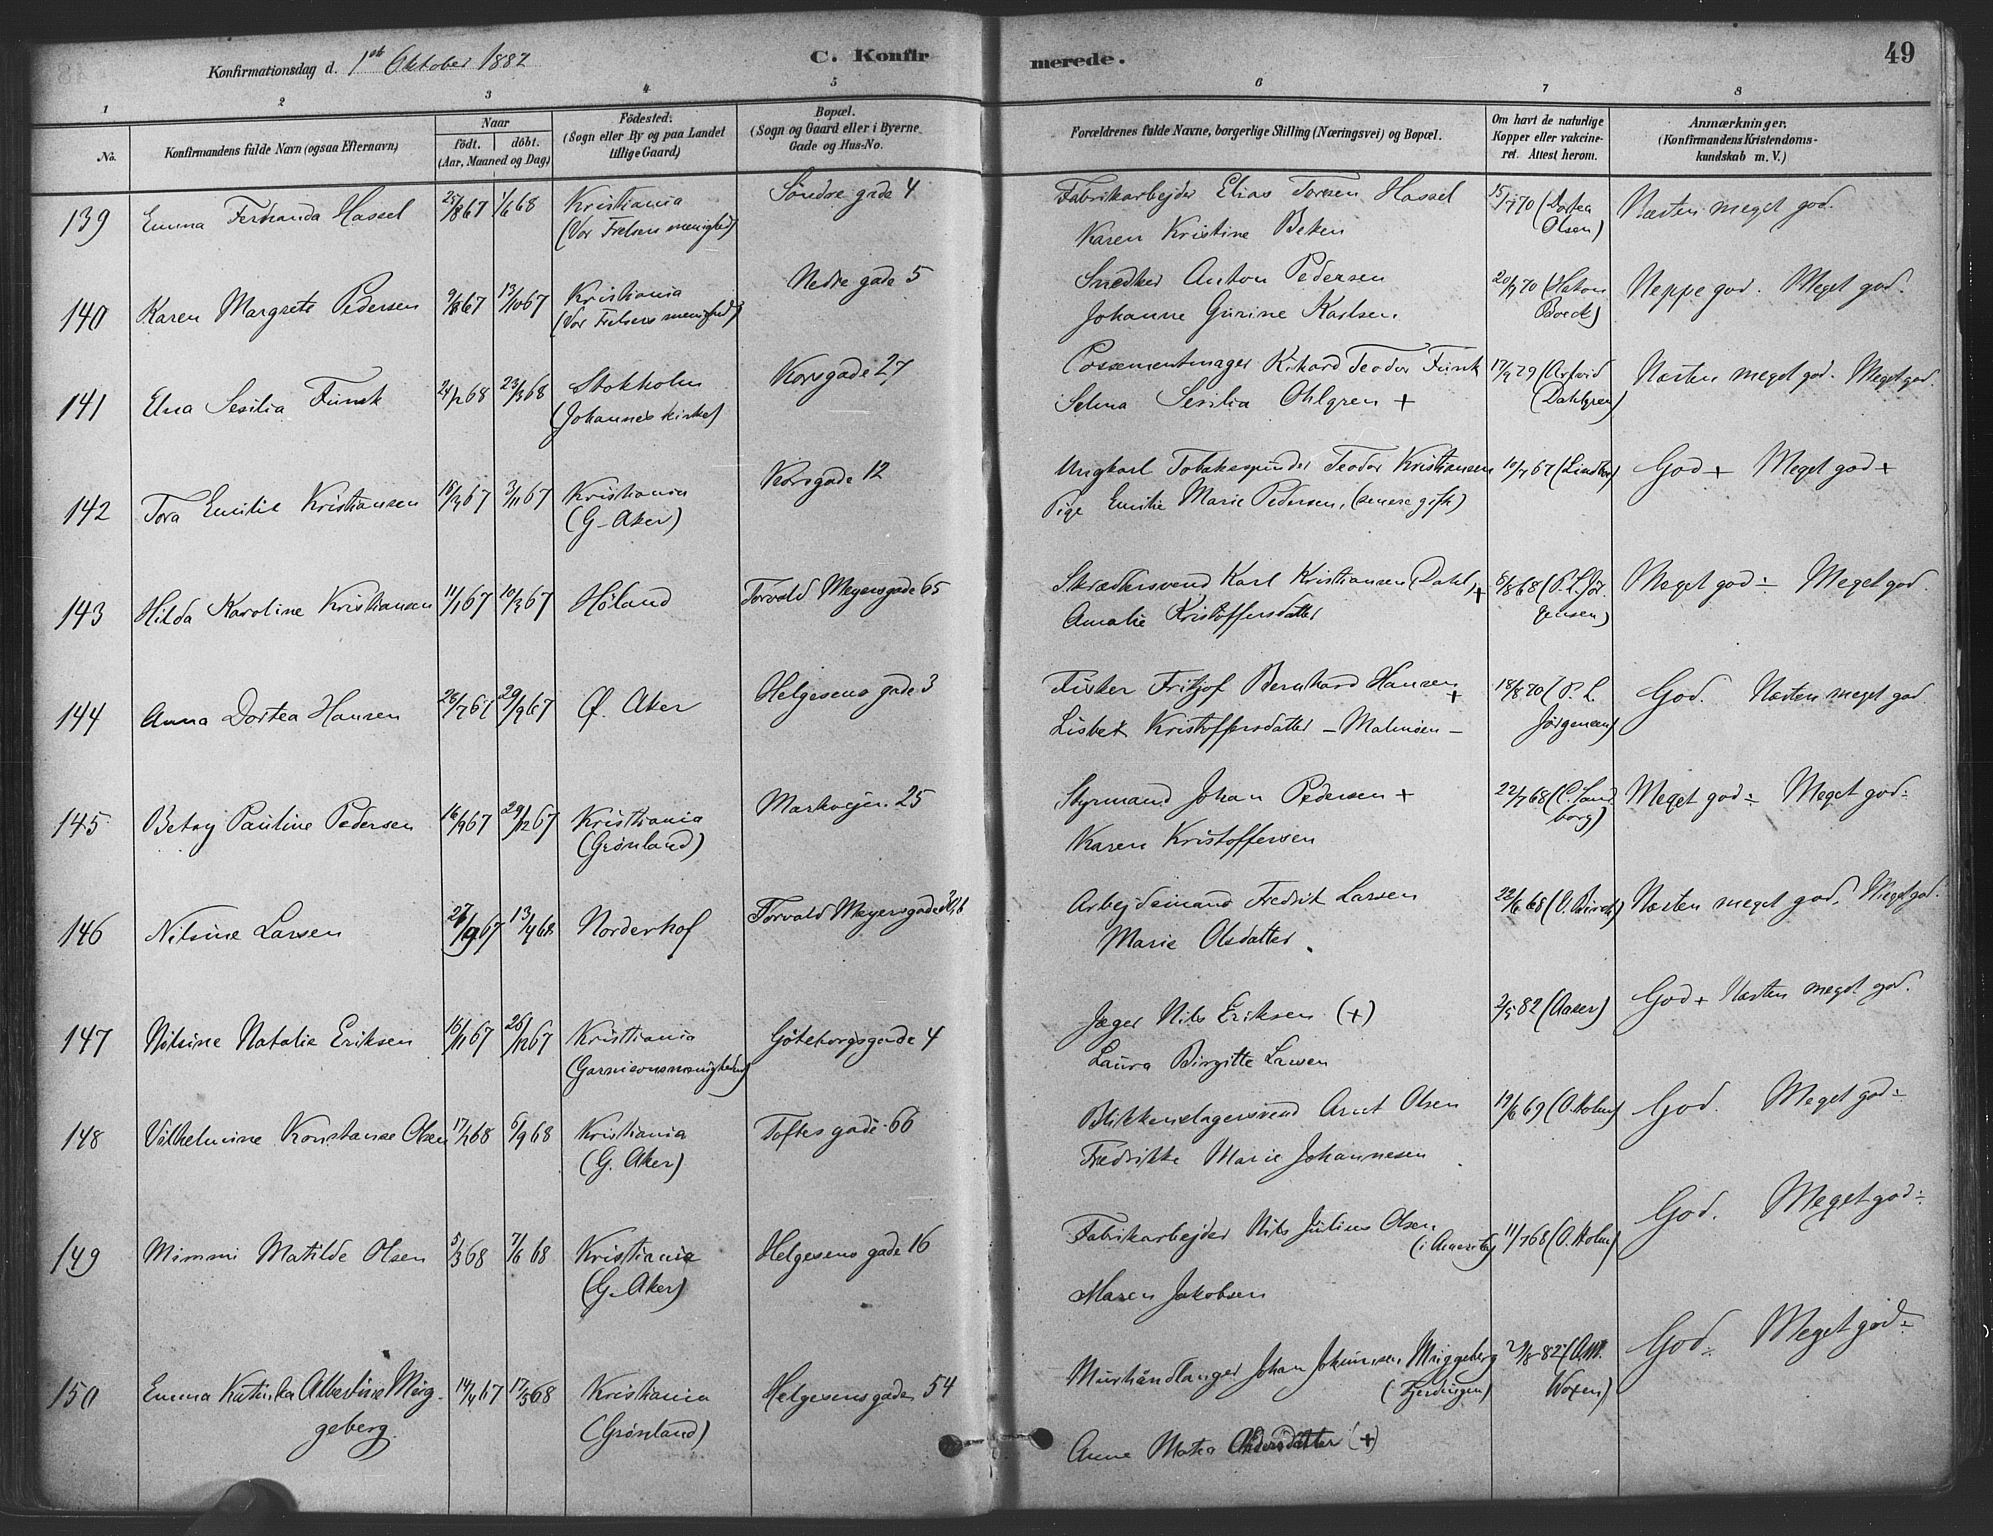 Konfirmationsdag d. 1ste Oktober 1882
C. Konfirmerede.
49
1 2 3 4 5 6 7 8
No.
Konfirmandens fulde Navn (ogsaa Efternavn)
Naar
födt. döbt.
(Aar, Maaned og Dag)
Födested.
(Sogn eller By og paa Landet
tillige Gaard)
Bopæl.
(Sogn og Gaard eller i Byerne
Gade og Hus-No.
Forældrenes fulde Navne, borgerlige Stilling (Næringsvei) og Bopæl.
Om havt de naturlige
Kopper eller vakcine-
ret. Attest herom.
Anmærkninger,
(Konfirmandens Kristendoms-
kundskab m. V.)
139 Emma Fernanda Hassel 25/8 67 1/6 68 Kristiania Söndre gade 4 Fabrikarbejder Elias Toresen Hassel 15/7 70 (Dortea Næsten meget god.
(Vor Frelsers menighed) Karen Kristine Beken Olsen)
140 Karen Margrete Pedersen 9/8 67 13/10 67 Kristiania Nedre gade 5 Snedker Anton Pedersen 20/9 70 (Hakon Neppe god. Meget god.
(Vor Frelsers menighed) Johanne Gurine Karlsen. Boeck)
141 Elna Sesilia Funck 24/2 68 23/3 68 Stokholm Korsgade 27 Possementmager Rikard Teodor Funck 17/9 79 (Arfvid Næsten meget god. Meget god.
(Johannes kirke) Selma Sesilia Ohlgren + Dahlgren)
142 Tora Emilie Kristiansen 3/11 67 Kristiania Korsgade 12 Ungkarl Tobakspinder Teodor Kristiansen 10/7 67 God + Meget god +
(G. Aker) Pige Emilie Marie Pedersen, (senere gift)
143 Hilda Karoline Kristiansen 11/1 67 10/3 67 Höland Torvald Meyersgade 65 Skrædersvend Karl Kristiansen (Dahl) + 8/8 68 (P. L. Jör- Meget god ÷ Meget god
Amalie Kristoffersdatter gensen)
144 Anna Dortea Hansen 26/7 67 29/9 67 Ø. Aker Helgesens gade 3 Fisker Fritjof Bernhard Hansen + 18/8 70 (P. L. God. Næsten meget god
Lisbet Kristoffersdatter - Malmöen - Jörgensen)
145 Betsy Pauline Pedersen 16/9 67 29/12 67 Kristiania Markvejen 25 Styrmand Johan Pedersen + 22/7 68 (C. Sand Meget god ÷ Meget god ÷
(Grönland) Karen Kristoffersen borg)
146 Nilsine Larsen 27/9 67 13/4 68 Norderhof Torvald Meyersgade Arbejdsmand Fredrik Larsen 22/6 68 (O. Birch) Næsten meget god. Meget god.
Marie Olsdatter.
147 Nilsine Natalie Eriksen 16/11 67 26/12 67 Kristiania Göteborgsgade 4 Jæger Nils Eriksen (+) 2/5 82 (Aaser) God + Næsten meget god.
(Garnisonsmenigheden) Laura Birgitte Larsen
148 Vilhelmine Konstanse Olsen 6/9 68 Kristiania Toftes gade 66 Blikkenslagersvend Arnt Olsen 19/6 69 (O. Holm) God. Meget god ÷
(G. Aker) Fredrikke Marie Johannesen
149 Mimmi Matilde Olsen 5/3 68 7/6 68 Kristiania Helgesens gade 16 Fabrikarbejder Nils Julius Olsen 11/7 68 (O. Holm) God. Meget god ÷
(G. Aker) (i Amerika)
Maren Jakobsen
150 Emma Katinka Albertine Mörg- 14/4 67 17/5 68 Kristiania Helgesensgade 54 Murhåndlanger Johan Johannesen 29/8 82 (A.M. God ÷ Meget god ÷
geberg. (Grönland) (Fjerdingen) Woxen)
Anne Matea Andersdatter (+)